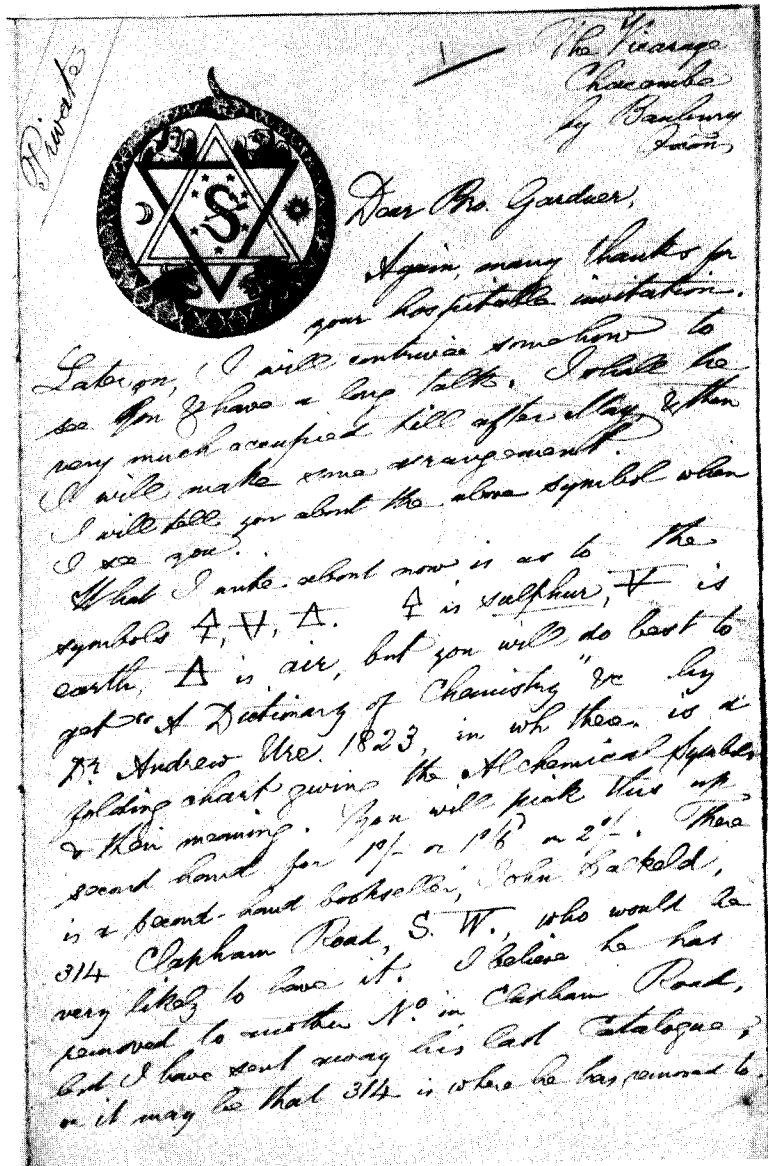 Private
1
The Vicarage
Chacombe
by Banbury
Oxon,
Dear Bro. Gardner,
Again, many thanks for
your hospitable invitation.
Later on, I will contrive somehow to
see you & have a long talk. I shall be
very much occupied till after May, & then
I will make some arrangement.
I will tell you about the above symbol when
I see you.
What I write about now is as to the
symbols 🜍, 🜃, 🜁. 🜍 is sulphur, 🜃 is
earth, 🜁 is air, but you will do best to
get "A Dictionary of Chemistry" &c by
Dr Andrew Ure. 1823, in wh there is a
folding chart giving the Alchemical Symbols
& their meaning. You will pick this up
second hand for 1/- or 1/6 or 2/-. There
is a second-hand bookseller, John
314 Clapham Road, S. W., who would be
very likely to have it. I believe he has
removed to another No. in Clapham Road,
but I have sent away his last Catalogue;
or it may be that 314 is where he has removed to.